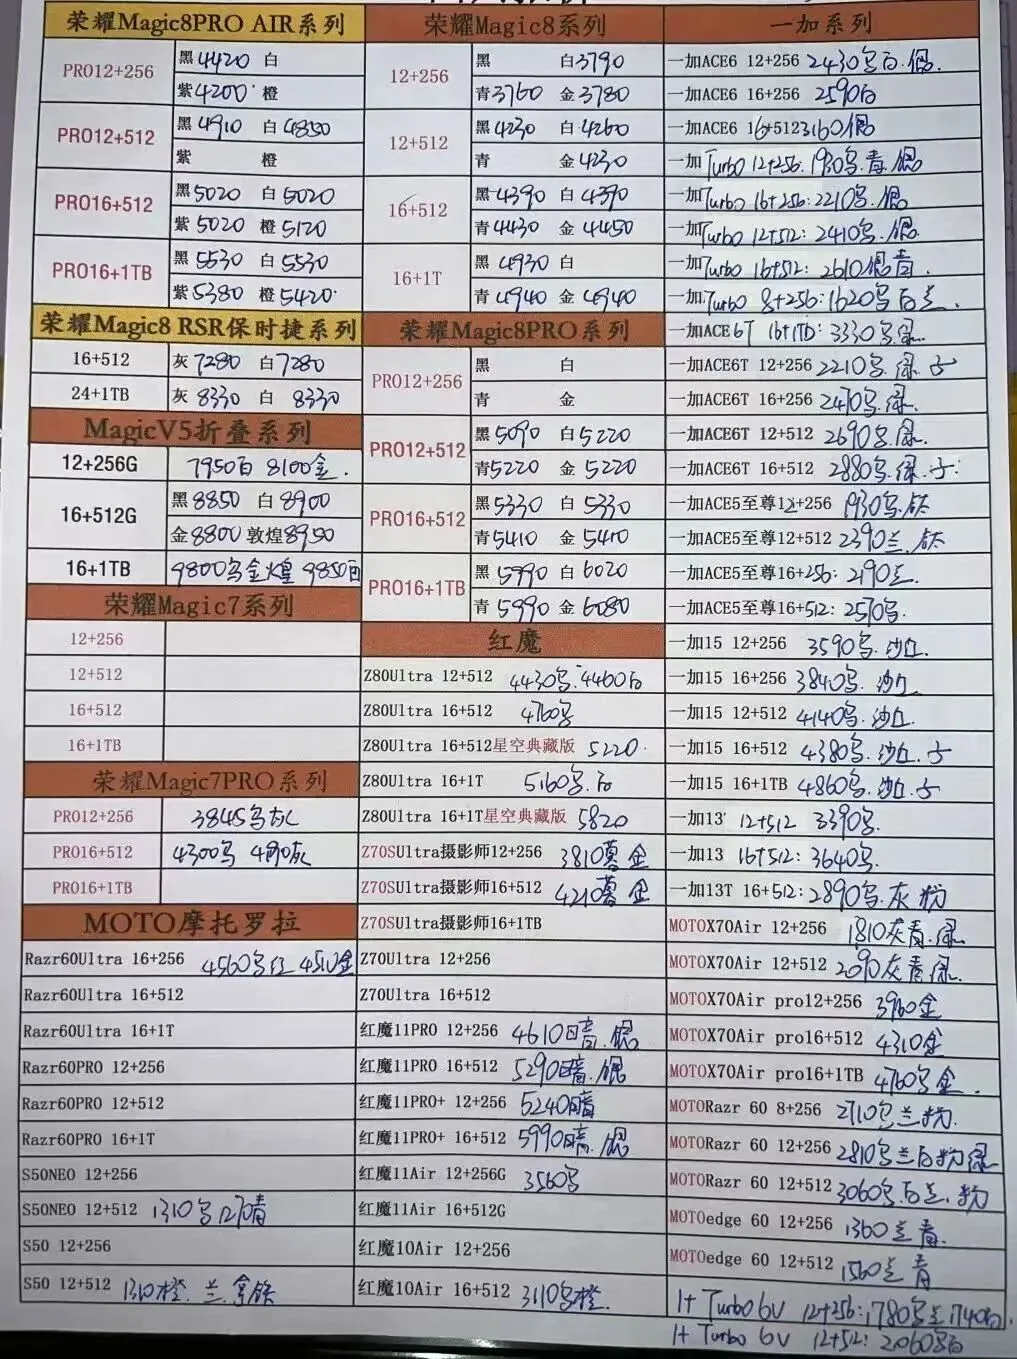 荣耀Magic8PRO AIR系列
PRO12+256
黑4420 白
紫4200 橙
PRO12+512
黑4910 白4850
紫 橙
PRO16+512
黑5020 白5020
紫5020 橙5120
PRO16+1TB
黑5530 白5530
紫5380 橙5420
荣耀Magic8 RSR保时捷系列
16+512 灰7280 白7280
24+1TB 灰8330 白8330
MagicV5折叠系列
12+256G 7950白 8100金.
16+512G
黑8850 白8900
金8800 敦煌8950
16+1TB 9800乌金煌 9850白
荣耀Magic7系列
12+256
12+512
16+512
16+1TB
荣耀Magic7PRO系列
PRO12+256 3845乌灰
PRO16+512 4300乌 灰
PRO16+1TB
MOTO摩托罗拉
Razr60Ultra 16+256 4560乌红 4510金
Razr60Ultra 16+512
Razr60Ultra 16+1T
Razr60PRO 12+256
Razr60PRO 12+512
Razr60PRO 16+1T
S50NEO 12+256
S50NEO 12+512 1310乌 青
S50 12+256
S50 12+512 1310橙.兰.
荣耀Magic8系列
12+256
黑 白3790
青3760 金3780
12+512
黑4230 白4260
青 金4230
16+512
黑4390 白4390
青4430 金4450
16+1T
黑4930 白
青4940 金4940
荣耀Magic8PRO系列
PRO12+256
黑 白
青 金
PRO12+512
黑5090 白5220
青5220 金5220
PRO16+512
黑5330 白5330
青5410 金5410
PRO16+1TB
黑5990 白6020
青5990 金6080
红魔
Z80Ultra 12+512 4430乌.4460白
Z80Ultra 16+512 4760乌
Z80Ultra 16+512星空典藏版 5220
Z80Ultra 16+1T 5160乌.白
Z80Ultra 16+1T星空典藏版 5820
Z70SUltra摄影师12+256 3810暮金
Z70SUltra摄影师16+512 4210暮金
Z70SUltra摄影师16+1TB
Z70Ultra 12+256
Z70Ultra 16+512
红魔11PRO 12+256 4610暗.银
红魔11PRO 16+512 5290暗.银
红魔11PRO+ 12+256 5240暗
红魔11PRO+ 16+512 5990暗.银
红魔11Air 12+256G 3560乌
红魔11Air 16+512G
红魔10Air 12+256
红魔10Air 16+512 3110乌橙.
一加系列
一加ACE6 12+256 2430乌白.银.
一加ACE6 16+256 2590白
一加ACE6 16+512 3160银
一加Turbo 12+256:1930乌.青.银
一加Turbo 16+256:2210乌.银
一加Turbo 12+512:2410乌.银.
一加Turbo 16+512:2610银青.
一加Turbo 8+256:1620乌白兰.
一加ACE6T 16+1TB:3330乌.绿.
一加ACE6T 12+256 2210乌.绿.子
一加ACE6T 16+256 2470乌.绿.
一加ACE6T 12+512 2690乌.绿
一加ACE6T 16+512 2880乌.绿.子.
一加ACE5至尊12+256 1930乌.钛
一加ACE5至尊12+512 2390兰.钛
一加ACE5至尊16+256:2190兰.
一加ACE5至尊16+512:2570乌.
一加15 12+256 3590乌.沙丘.
一加15 16+256 3840乌.沙丘
一加15 12+512 4140乌.沙丘.
一加15 16+512 4380乌.沙丘.子
一加15 16+1TB 4860乌.沙丘.子
一加13 12+512 3390乌.
一加13 16+512:3640乌.
一加13T 16+512:2890乌.灰.粉
MOTOX70Air 12+256 1810灰青.绿
MOTOX70Air 12+512 2090灰青绿.
MOTOX70Air pro12+256 3960金
MOTOX70Air pro16+512 4310金
MOTOX70Air pro16+1TB 4760乌金.
MOTORazr 60 8+256 2710乌兰粉.
MOTORazr 60 12+256 2810乌兰白粉绿
MOTORazr 60 12+512 3060乌.白兰.粉
MOTOedge 60 12+256 1360兰青.
MOTOedge 60 12+512 1560兰青
1+ Turbo 6V 12+256:1780乌兰1740白.
1+ Turbo 6V 12+512:2060乌白